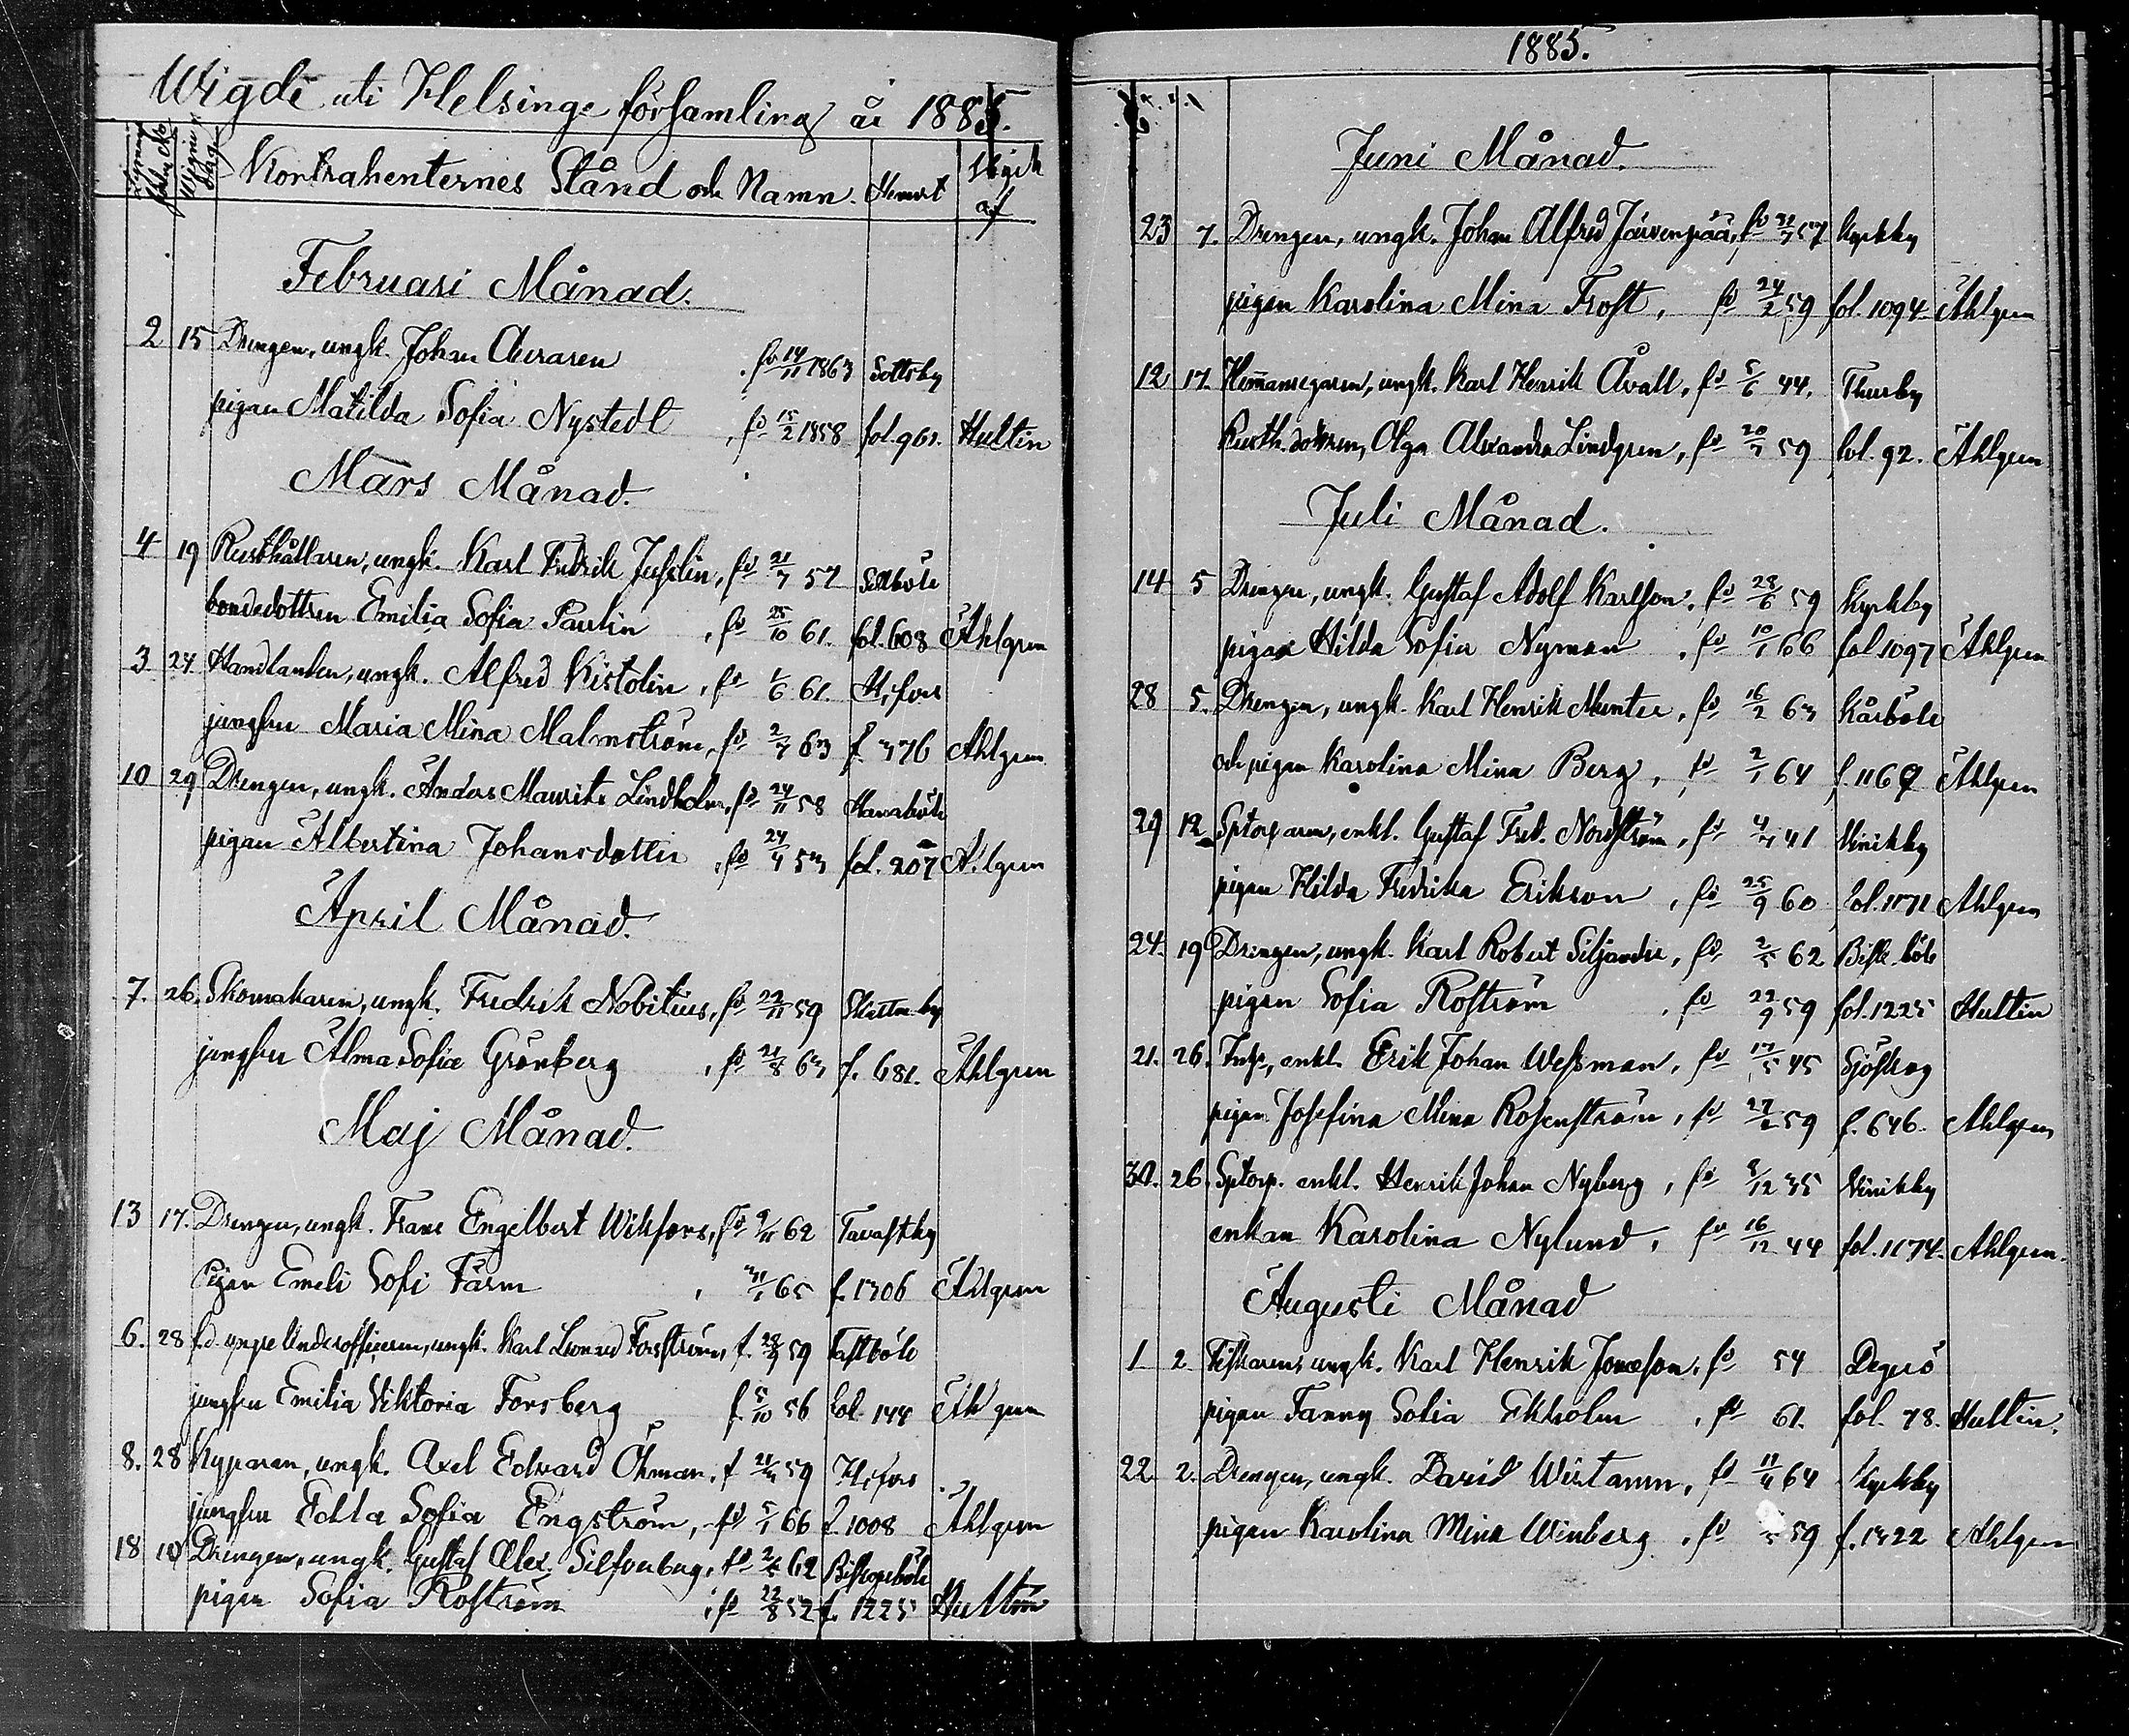 Wigde uti Helsinge församling år 1885.
Lysningsbokens No Vigningsdag Kontrahenternes Stånd och Namn. Hemort Vigde af
Februari Månad.
2 15 Drengen, ungk. Johan Averaren, fd 14/11 1863 Sottsby
pigan Matilda Sofia Nystedt, fd 15/2 1858 fol. 961. Hultin
Mars Månad.
4 19 Rusthållaren, ungk. Karl Fredrik Jusslin, fd 21/7 57
bondedottren Emilia Sofia Paulin, fd 25/10 61. fol. 608 Åhlgren
3 24 Handlanden, ungk. Alfred Kistolin, fd 1/6 61 H:fors
jungfru Maria Mina Malmström, fd 2/7 63 f. 376 Ahlgren
10 29 Drengen, ungk. Anders Maurits Lindholm, fd 24/11 58 Hanaböle
pigan Albertina Johansdotter, fd 24/4 53 fol. 207 Ahlgren
April Månad.
7. 26. Skomakaren, ungk. Fredrik Nobitius, fd 22/11 59 Skattmby
jungfru Alma Sofia Grönberg, fd 21/8 63 f. 681. Ahlgren
Maj Månad.
13 17. Drengen, ungk. Frans Engelbert Wikfors, fd 9/11 62 Tavastby
Pigan Emeli Sofi Färm, 31/1 65 f. 1306 Ahlgren
6. 28 f.d. yngre Underofficeren, ungk. Karl Leonard Forsström, f. 28/9 59 Fastböle
jungfru Emilia Viktoria Forsberg f. 5/10 56 fol. 144 Ahlgren
8. 28 Kyparen, ungk. Axel Edvard Öhman, f 59 H:fors
jungfru Edla Sofia Engström, fd 5/1 66 f. 1008 Ahlgren
18 Drengen, ungk. Gustaf Alex. Silfverberg, fd 62 Biskopsböle
pigan Sofia Roström, fd 22/8 52 f. 1225 Hultin
1885.
Juni Månad.
23 7. Drengen, ungk. Johan Alfred Järvenpää, fd 31/7 57 Kyrkby
pigan Karolina Mina Frost, fd 24/2 59 fol. 1094 Ahlgren
12 17. Hemmansegaren, ungk. Karl Henrik Åvall, fd 5/6 44. Thusby
Rusth. dottren, Olga Alexandra Lindgren, fd 59 fol. 92. Ahlgren
Juli Månad.
14 5 Drengen, ungk. Gustaf Adolf Karlsson, fd 28/6 59 Kyrkby
pigan Hilda Sofia Nyman, fd 10/1 66 fol 1097 Ahlgren
28 5. Drengen, ungk. Karl Henrik Munter, fd 16/2 63 Kårböle
och pigan Karolina Mina Berg, fd 2/1 64 f. 1167 Ahlgren
29 12 Sptorparen, enkl. Gustaf Fred. Nordström, fd 41 Vinikby
pigan Hilda Fredrika Erikson, fd 25/9 60 fol. 1171 Ahlgren
24. 19 Drengen, ungk. Karl Robert Siljander, fd 2/5 62 Bisk.böle
pigan Sofia Roström, fd 22/9 59 fol. 1225 Hultin
21. 26. Inhs, enkl. Erik Johan Wessman, fd 17/5 45 Sjöskog
pigan Josefina Mina Rosenström, fd 59 f. 646. Ahlgren
30. 26. Sptorp. enkl. Henrik Johan Nyberg, fd 8/12 35 Vinikby
enkan Karolina Nylund, fd 16/12 44 fol. 1174. Ahlgren.
Augusti Månad
1 2. Fiskaren, ungk. Karl Henrik Jonasson, fd 54 Degerö
pigan Fanny Sofia Ekholm, fd 61. fol. 78. Hultin.
22 2. Drengen, ungk. David Wirtanen, fd 11/4 64 Kyrkby
pigan Karolina Mina Winberg, fd 59 f. 1322 Ahlgren